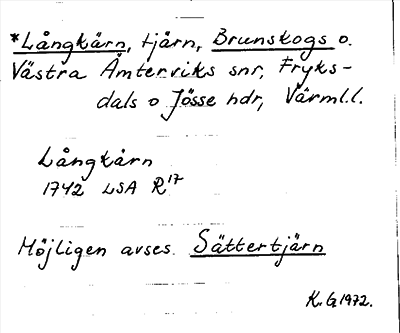 *Långkärn, tjärn, Brunskogs o.
Västra Ämterviks snr, Fryks-
dals o Jösse hdr, Värml.l.
Långkårn
1742 LSA R17
Möjligen avses Sättertjärn
K.G.1972.